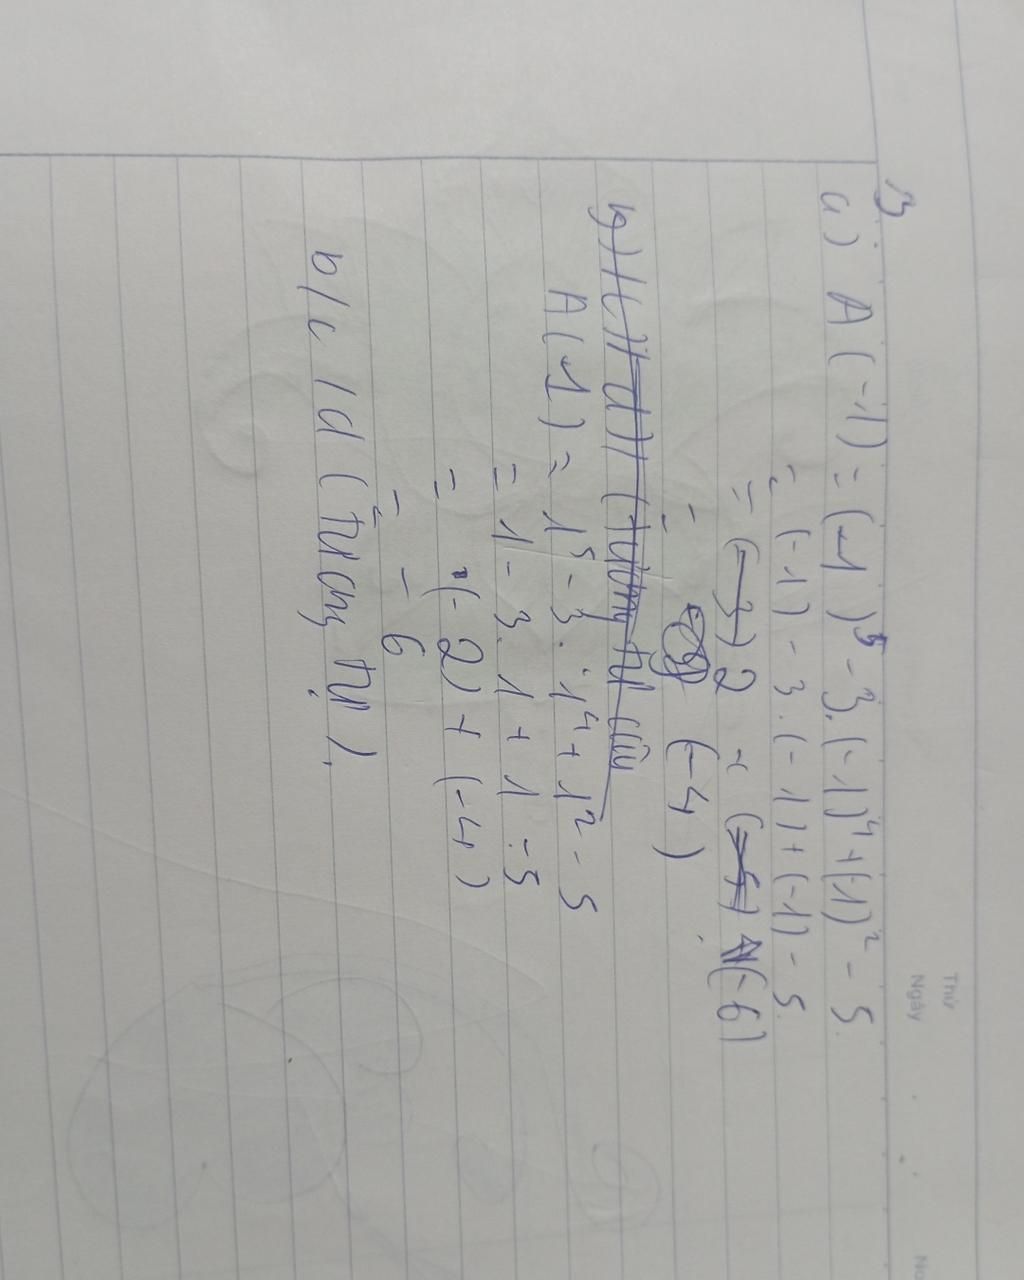 Thứ
Ngày
3
a) A(-1) = (-1)⁵ - 3.(-1)⁴ + (-1)² - 5.
= (-1) - 3.(-1) + (-1) - 5.
= 2 + (-6)
= (-4)
b) / c) / d) (tương tự câu
A(1) = 1⁵ - 3.1⁴ + 1² - 5
= 1 - 3.1 + 1 - 5
= (-2) + (-4)
= -6
b/c/d (tương tự).